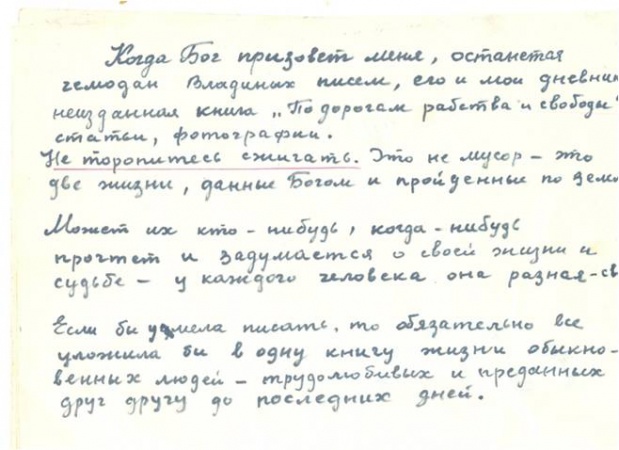 Когда Бог призовет меня, останется
чемодан Владиных писем, его и мои дневник
неизданная книга „По дорогам рабства и свободы"
статьи, фотографии.
Не торопитесь сжигать. Это не мусор – это
две жизни, данные Богом и пройденные по зем
Может их кто-нибудь, когда-нибудь
прочтет и задумается о своей жизни и
судьбе – у каждого человека она разная-св
Если бы умела писать, то обязательно все
уложила бы в одну книгу жизни обыкно-
венных людей – трудолюбивых и преданных
друг другу до последних дней.